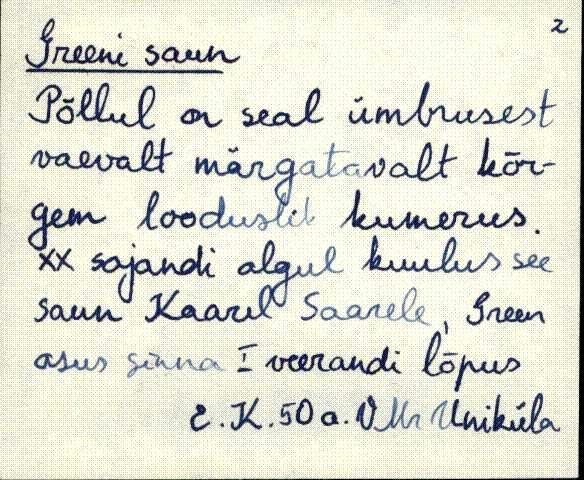 2
Greeni saun
Põllul on seal ümbrusest
vaevalt märgatavalt kõr-
gem looduslik kumerus.
XX sajandi algul kuulus see
saun Kaarel Saarele, Green
asus sinna I veerandi lõpus
E.K. 50 a. V Mr Uniküla